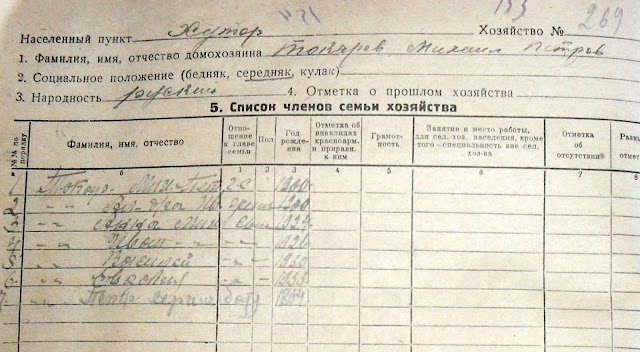 153
Населенный пункт Хутор Хозяйство № 269
1. Фамилия, имя, отчество домохозяина Токарев Михаил Петров
2. Социальное положение (бедняк, середняк, кулак)
3. Народность руский 4. Отметка о прошлом хозяйства
5. Список членов семьи хозяйства
№№ по порядку Фамилия, имя, отчество Отношение к главе семьи Пол Год рождения Отметка об инвалидах красноарм. и приравн. к ним Грамотность Занятия и место работы, для сел.-хоз. населения, кроме того—специальность вне сел. хоз-ва Отметка об отсутствии
б 1 2 3 4 5 6 7 8
1 Токар. Мих Пет г-с - 1900
2 -"- - 1900
3 -"- - 1924
4 -"- Иван -"- - 1926
5 -"- Василий -"- - 1930
6 -"- Евдокия -"- -
7 -"- Петр